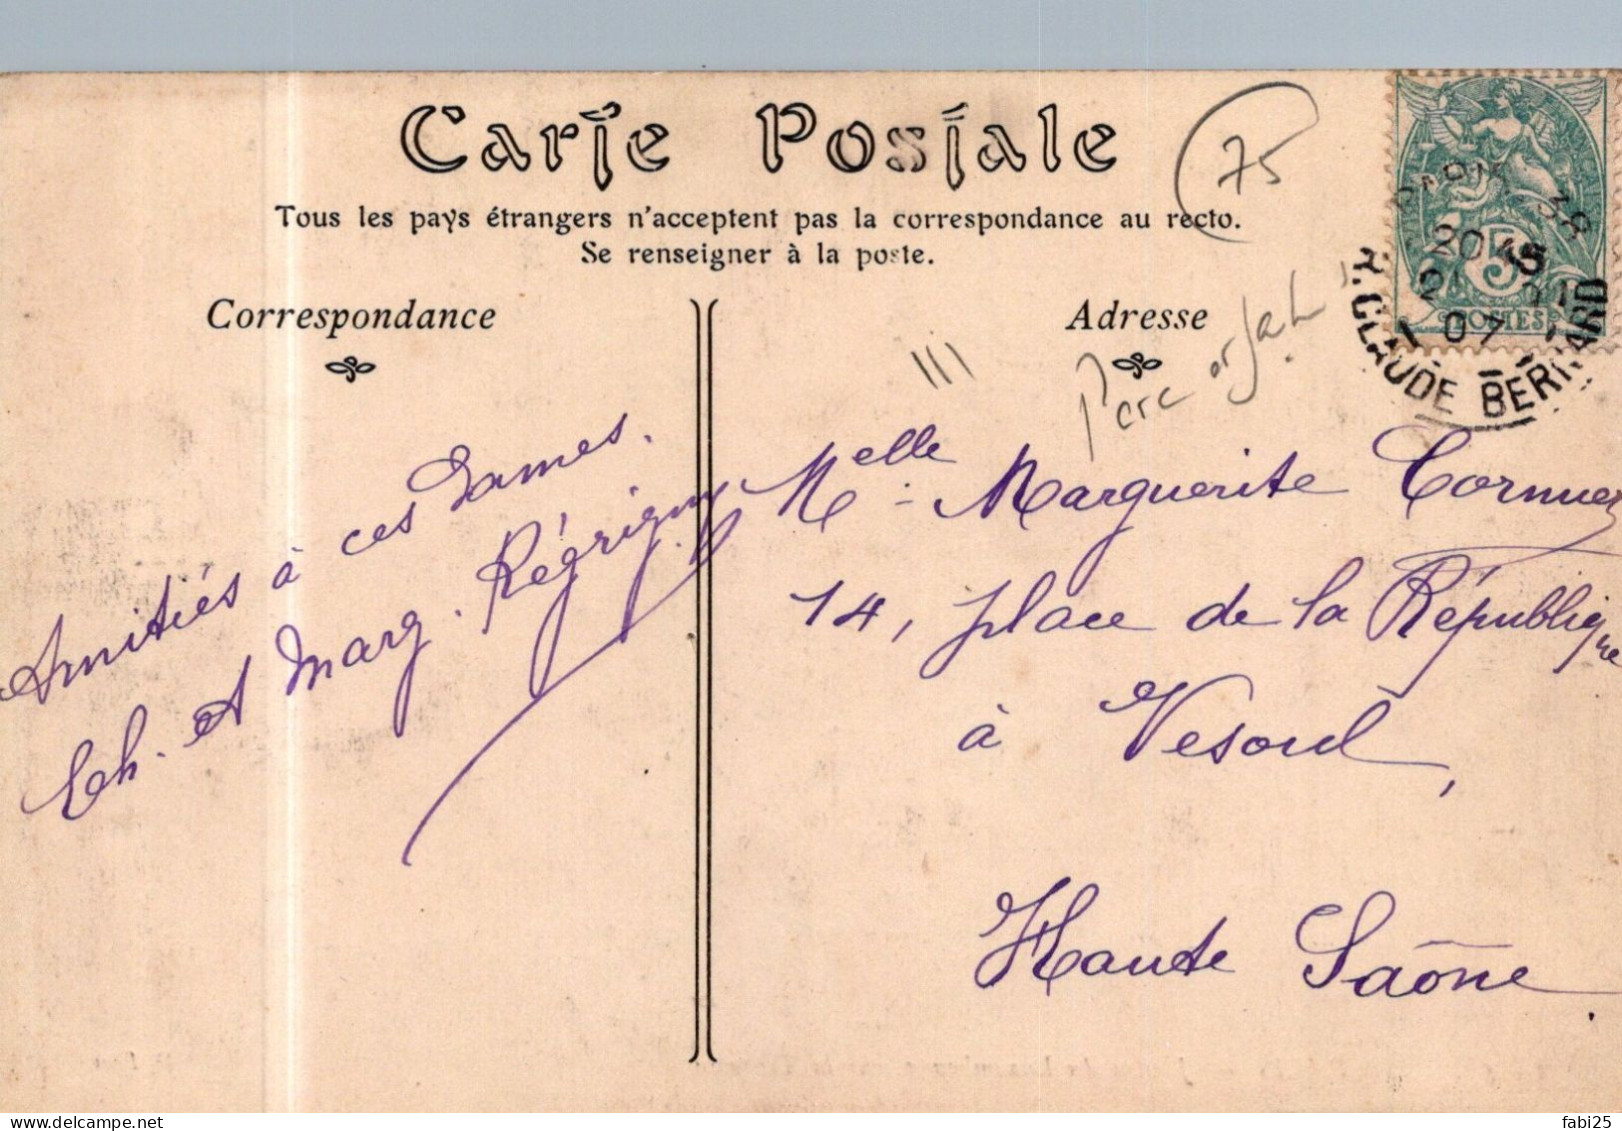 Carte Postale
75
Tous les pays étrangers n'acceptent pas la correspondance au recto.
Se renseigner à la poste.
Correspondance
Adresse
Parc
PARIS 38
20 45
07
R. CLAUDE BERNARD
5
POSTES
Amitiés à ces Dames.
Ch. et Marg. Régrigny
Melle Marguerite Cornuez
14, place de la République
à Vesoul,
Haute Saône.
fabi25